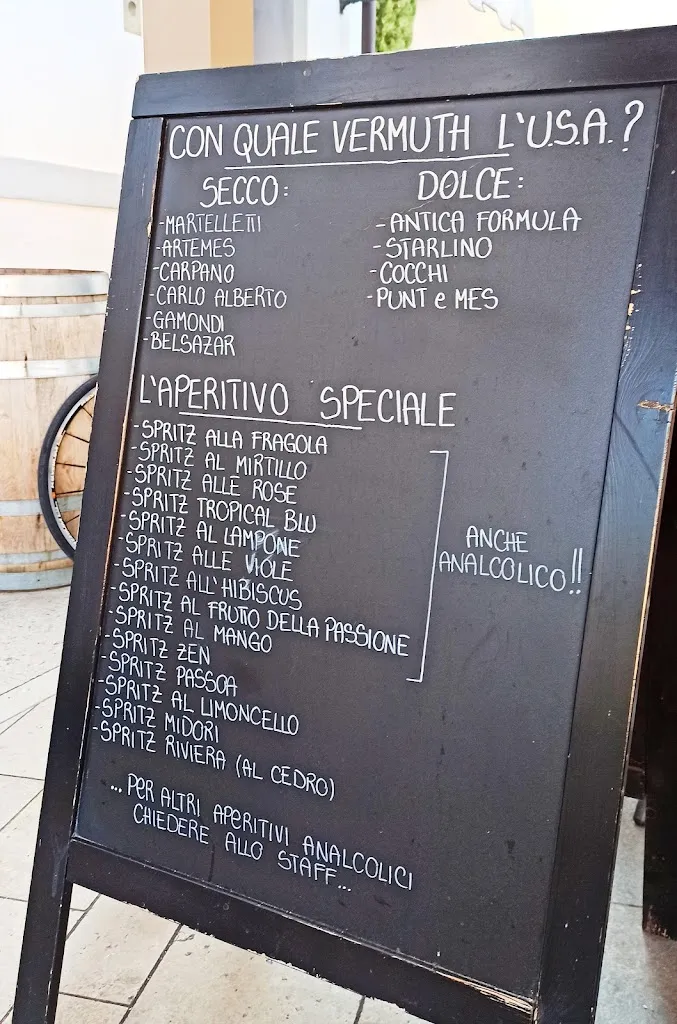 CON QUALE VERMUTH L'U.S.A.?
SECCO:
-MARTELLETTI
-ARTEMES
-CARPANO
-CARLO ALBERTO
-GAMONDI
-BELSAZAR
DOLCE:
-ANTICA FORMULA
-STARLINO
-COCCHI
-PUNT e MES
L'APERITIVO SPECIALE
-SPRITZ ALLA FRAGOLA
-SPRITZ AL MIRTILLO
-SPRITZ ALLE ROSE
-SPRITZ TROPICAL BLU
-SPRITZ AL LAMPONE
-SPRITZ ALLE VIOLE
-SPRITZ ALL'HIBISCUS
-SPRITZ AL FRUTTO DELLA PASSIONE
-SPRITZ AL MANGO
-SPRITZ ZEN
-SPRITZ PASSOA
-SPRITZ AL LIMONCELLO
-SPRITZ MIDORI
-SPRITZ RIVIERA (AL CEDRO)
ANCHE
ANALCOLICO!!
... PER ALTRI APERITIVI ANALCOLICI
CHIEDERE ALLO STAFF...